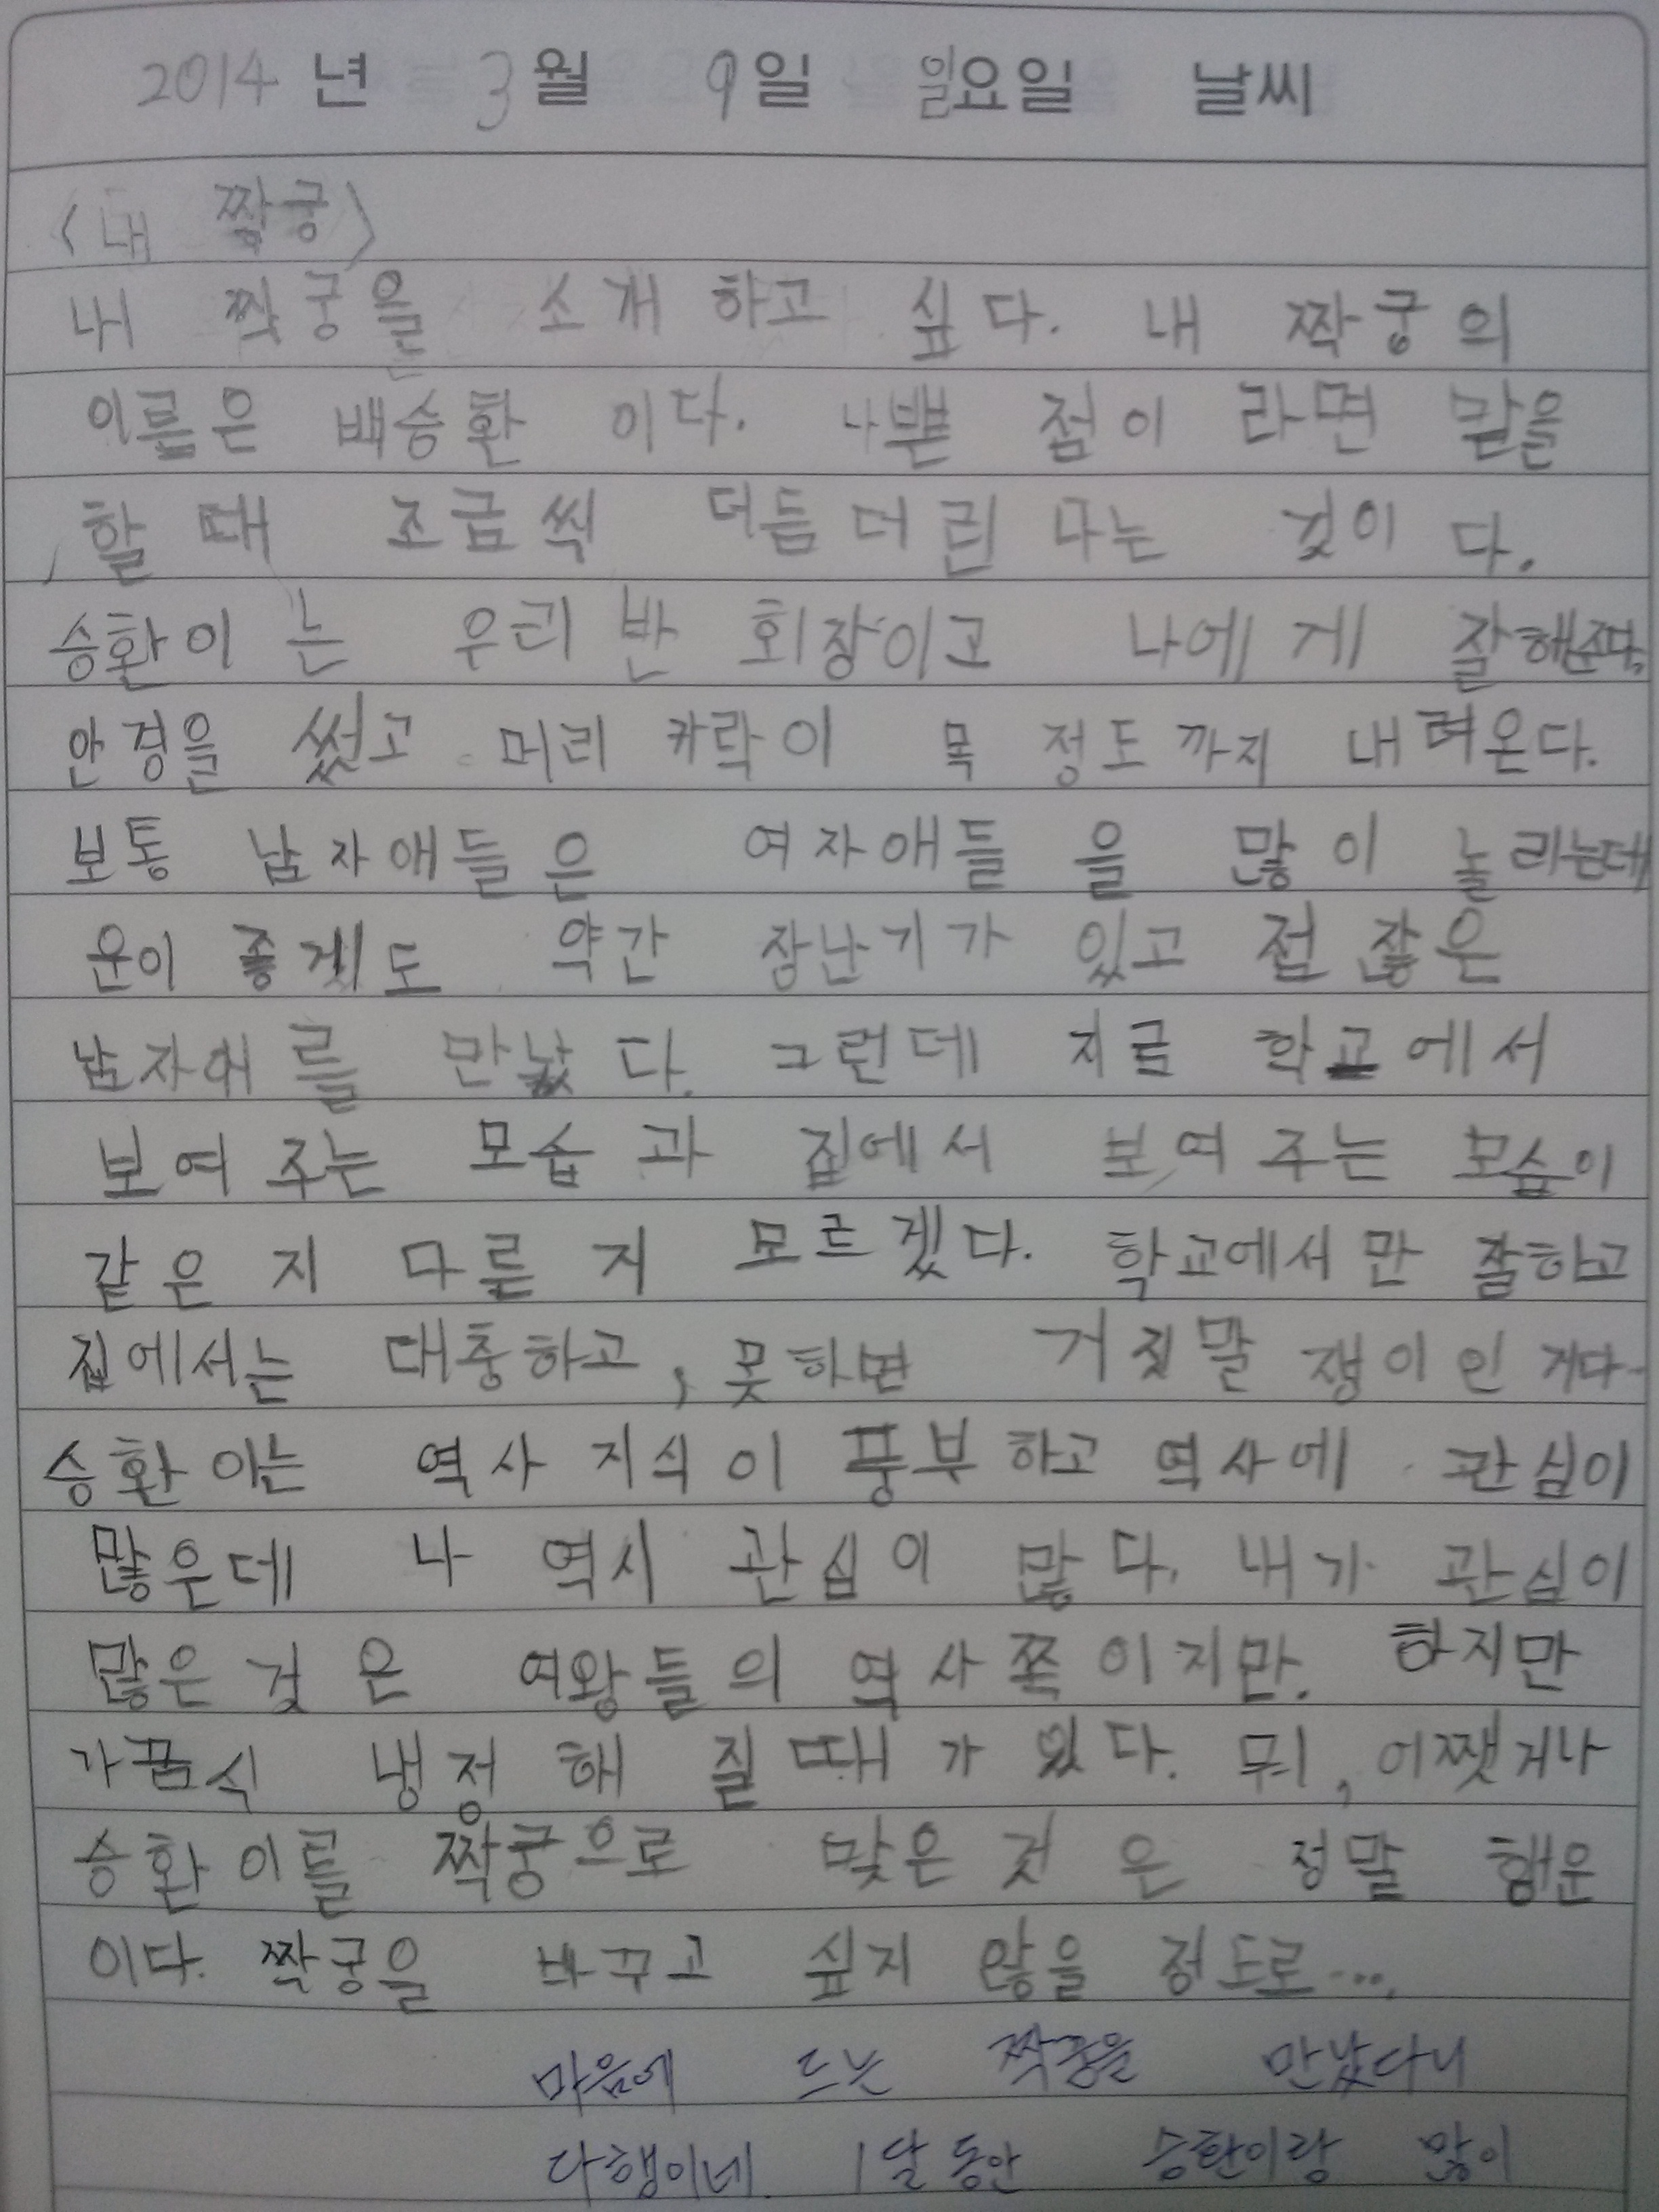 2014 년 3 월 9 일 일요일 날씨
<내 짝궁>
내 짝궁을 소개 하고 싶다. 내 짝궁의
이름은 배승환 이다. 나쁜 점이 라면 말을
할 때 조금씩 더듬더린 다는 것이 다.
승환이 는 우리 반 회장이고 나에게 잘해준다.
안경을 썼고 머리 카락이 목 정도까지 내려온다.
보통 남자애들은 여자애들을 많이 놀리는데
운이 좋게도 약간 장난기가 있고 점잖은
남자애를 만났다. 그런데 지금 학교에서
보여 주는 모습과 집에서 보여 주는 모습이
같은 지 다를 지 모르겠다. 학교에서만 잘하고
집에서는 대충하고, 못하면 거짓말 쟁이인 거다.
승환이는 역사 지식이 풍부하고 역사에 관심이
많은데 나 역시 관심이 많다. 내가 관심이
많은 것은 여왕들의 역사쪽이지만. 하지만
가끔식 냉정해 질 때가 있다. 뭐, 어쨋거나
승환이를 짝궁으로 맞은 것은 정말 행운
이다. 짝궁을 바꾸고 싶지 않을 정도로....
마음에 드는 짝궁을 만났다니
다행이네. 1달 동안 승환이랑 많이